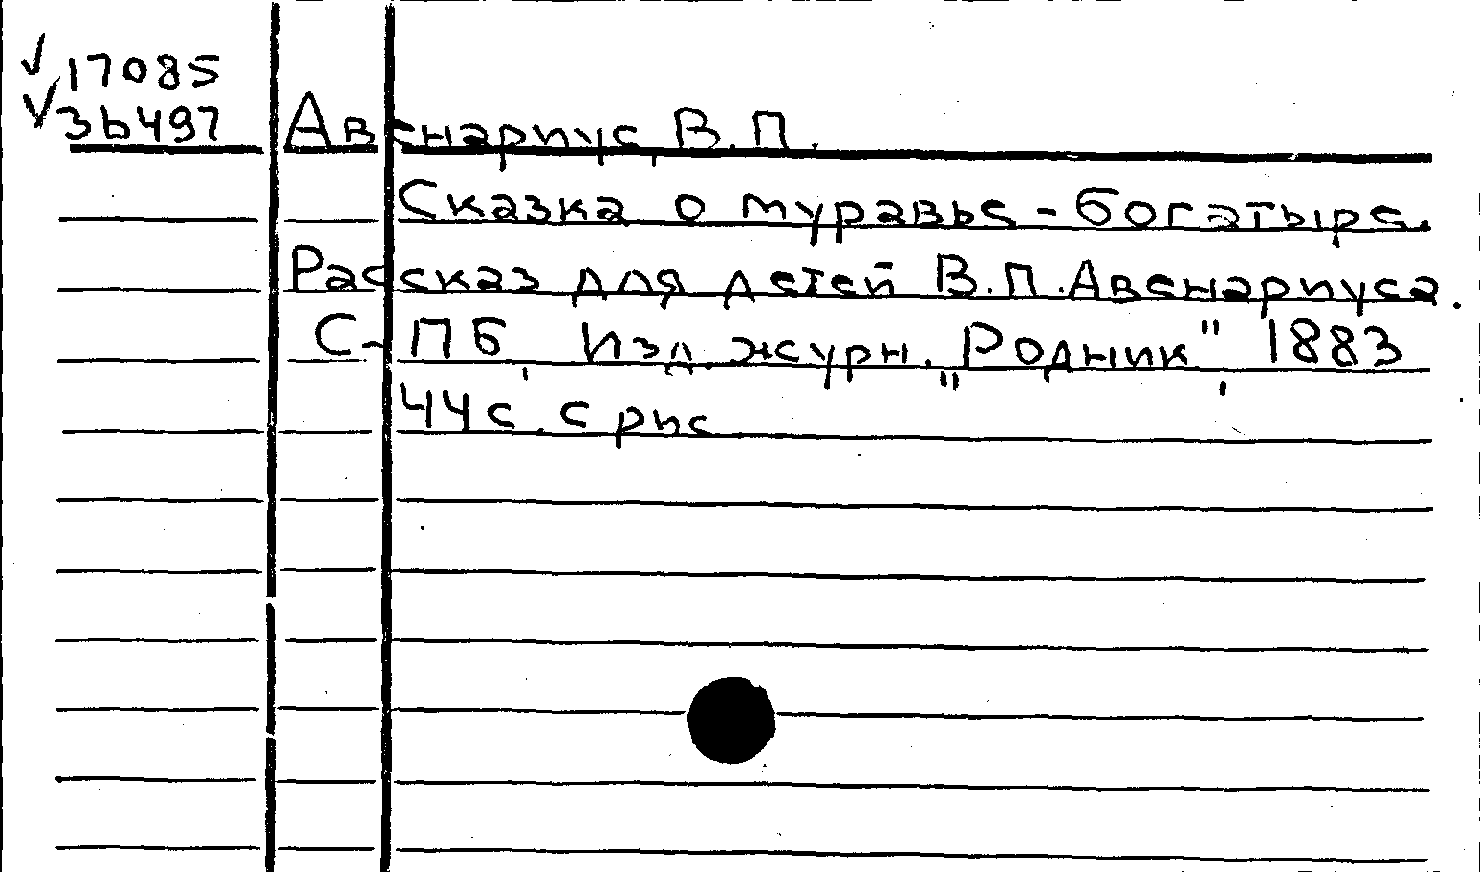 √17085
√36497
Авенариус, В.П.
Сказка о муравье-богатыре.
Рассказ для детей В.П.Авенариуса.
С-ПБ, Изд. журн. „Родник", 1883
44с. с рис